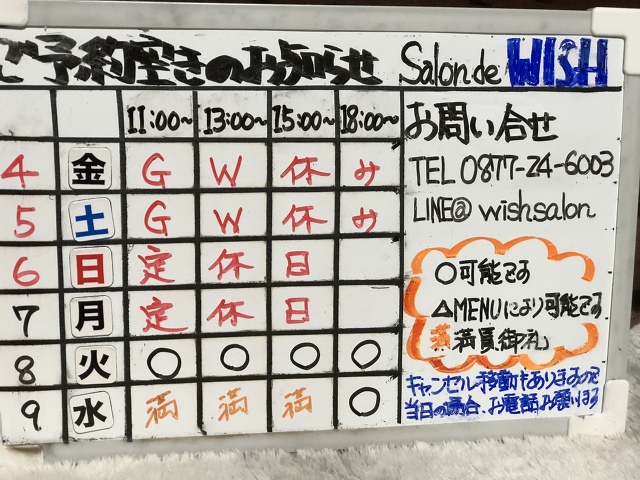 ご予約空きのお知らせ Salon de WISH
11:00~ 13:00~ 15:00~ 18:00~
4 金 G W 休 み
5 土 G W 休 み
6 日 定 休 日
7 月 定 休 日
8 火 ○ ○ ○ ○
9 水 満 満 満 ○
お問い合せ
TEL 0877-24-6003
LINE@ wishsalon
○可能です
△MENUにより可能です
満 満員御礼
キャンセル移動もありますので
当日の場合、お電話お願いします